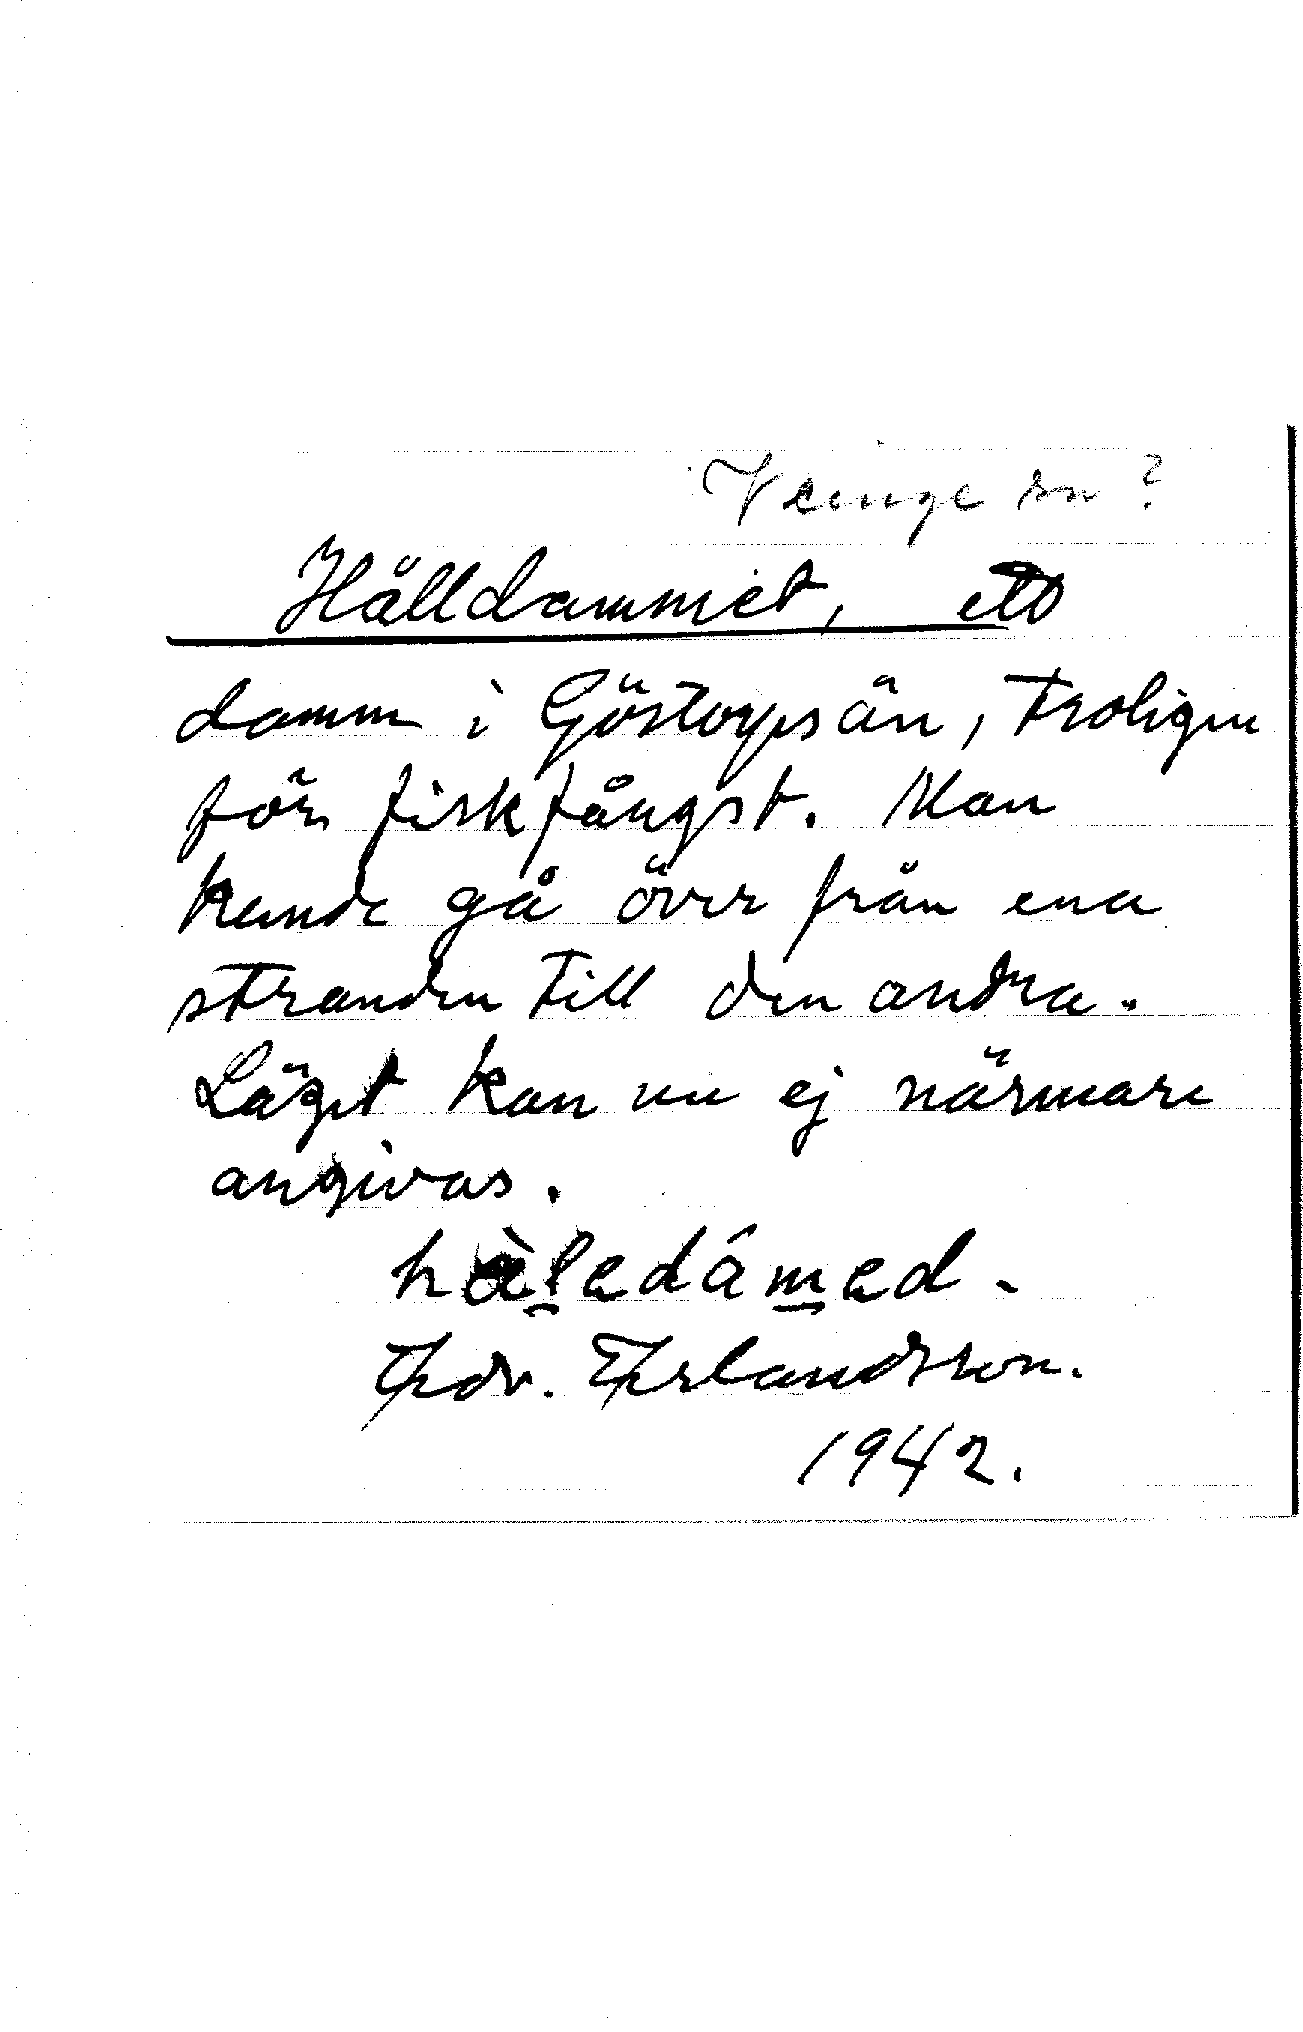 Veinge sn?
Hålldammet, ett
damm i Göstorpsån, troligen
för fiskfångst. Man
kunde gå över från ena
stranden till den andra.
Läget kan nu ej närmare
angivas.
hàl̠edámed.
Edv. Erlandsson.
1942.